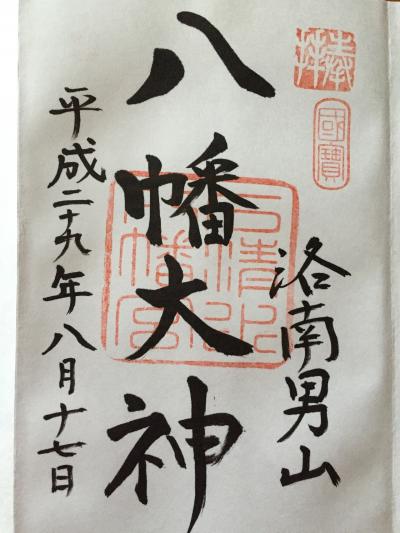 奉拝
國寶
洛南男山
八幡大神
石清水八幡宮
平成二十九年八月十七日